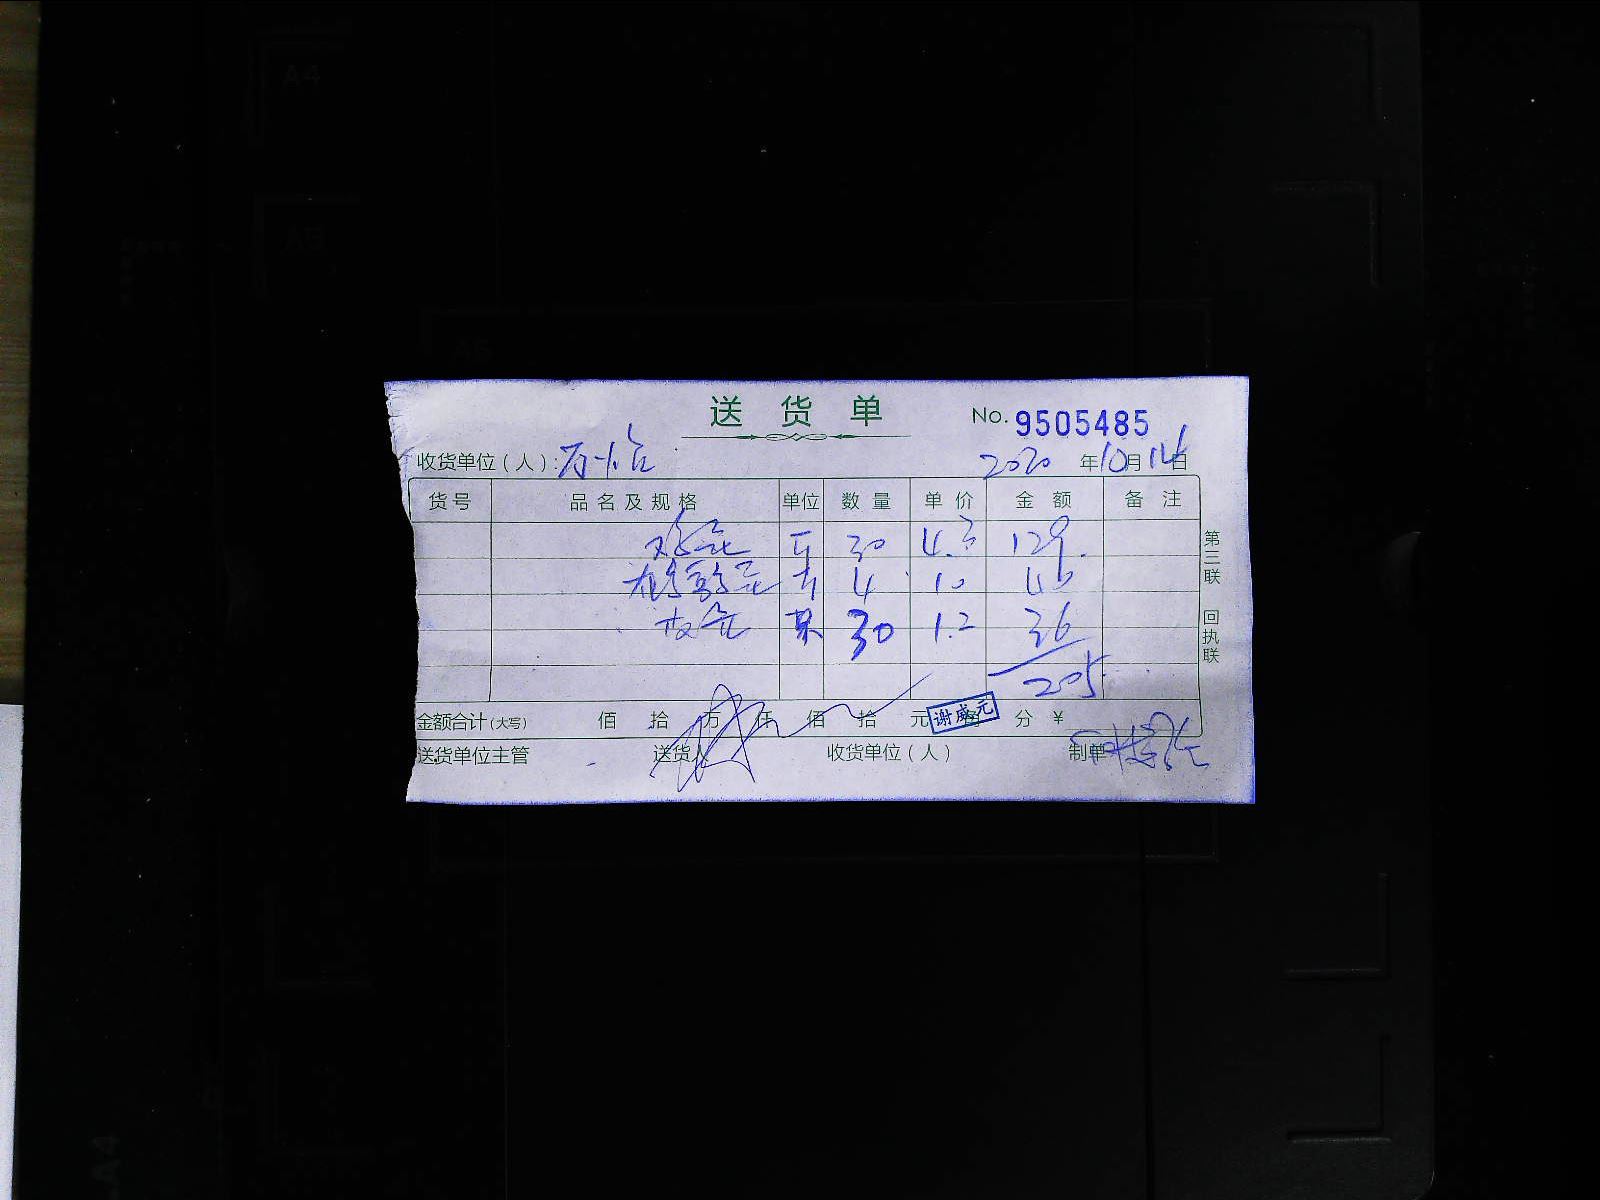 送货单
No. 9505485
收货单位（人）:
2020 年 10 月 14 日
货号 品名及规格 单位 数量 单价 金额 备注
鸡蛋 斤 30 4.3 129.
鹌鹑蛋 斤 4 10 40
皮蛋 30 1.2 36
205
金额合计(大写) 佰 拾 万 仟 佰 拾 元 角 分 ¥
谢威元
送货单位主管 送货人 收货单位（人） 制单
第三联 回执联
A4
A5
A4